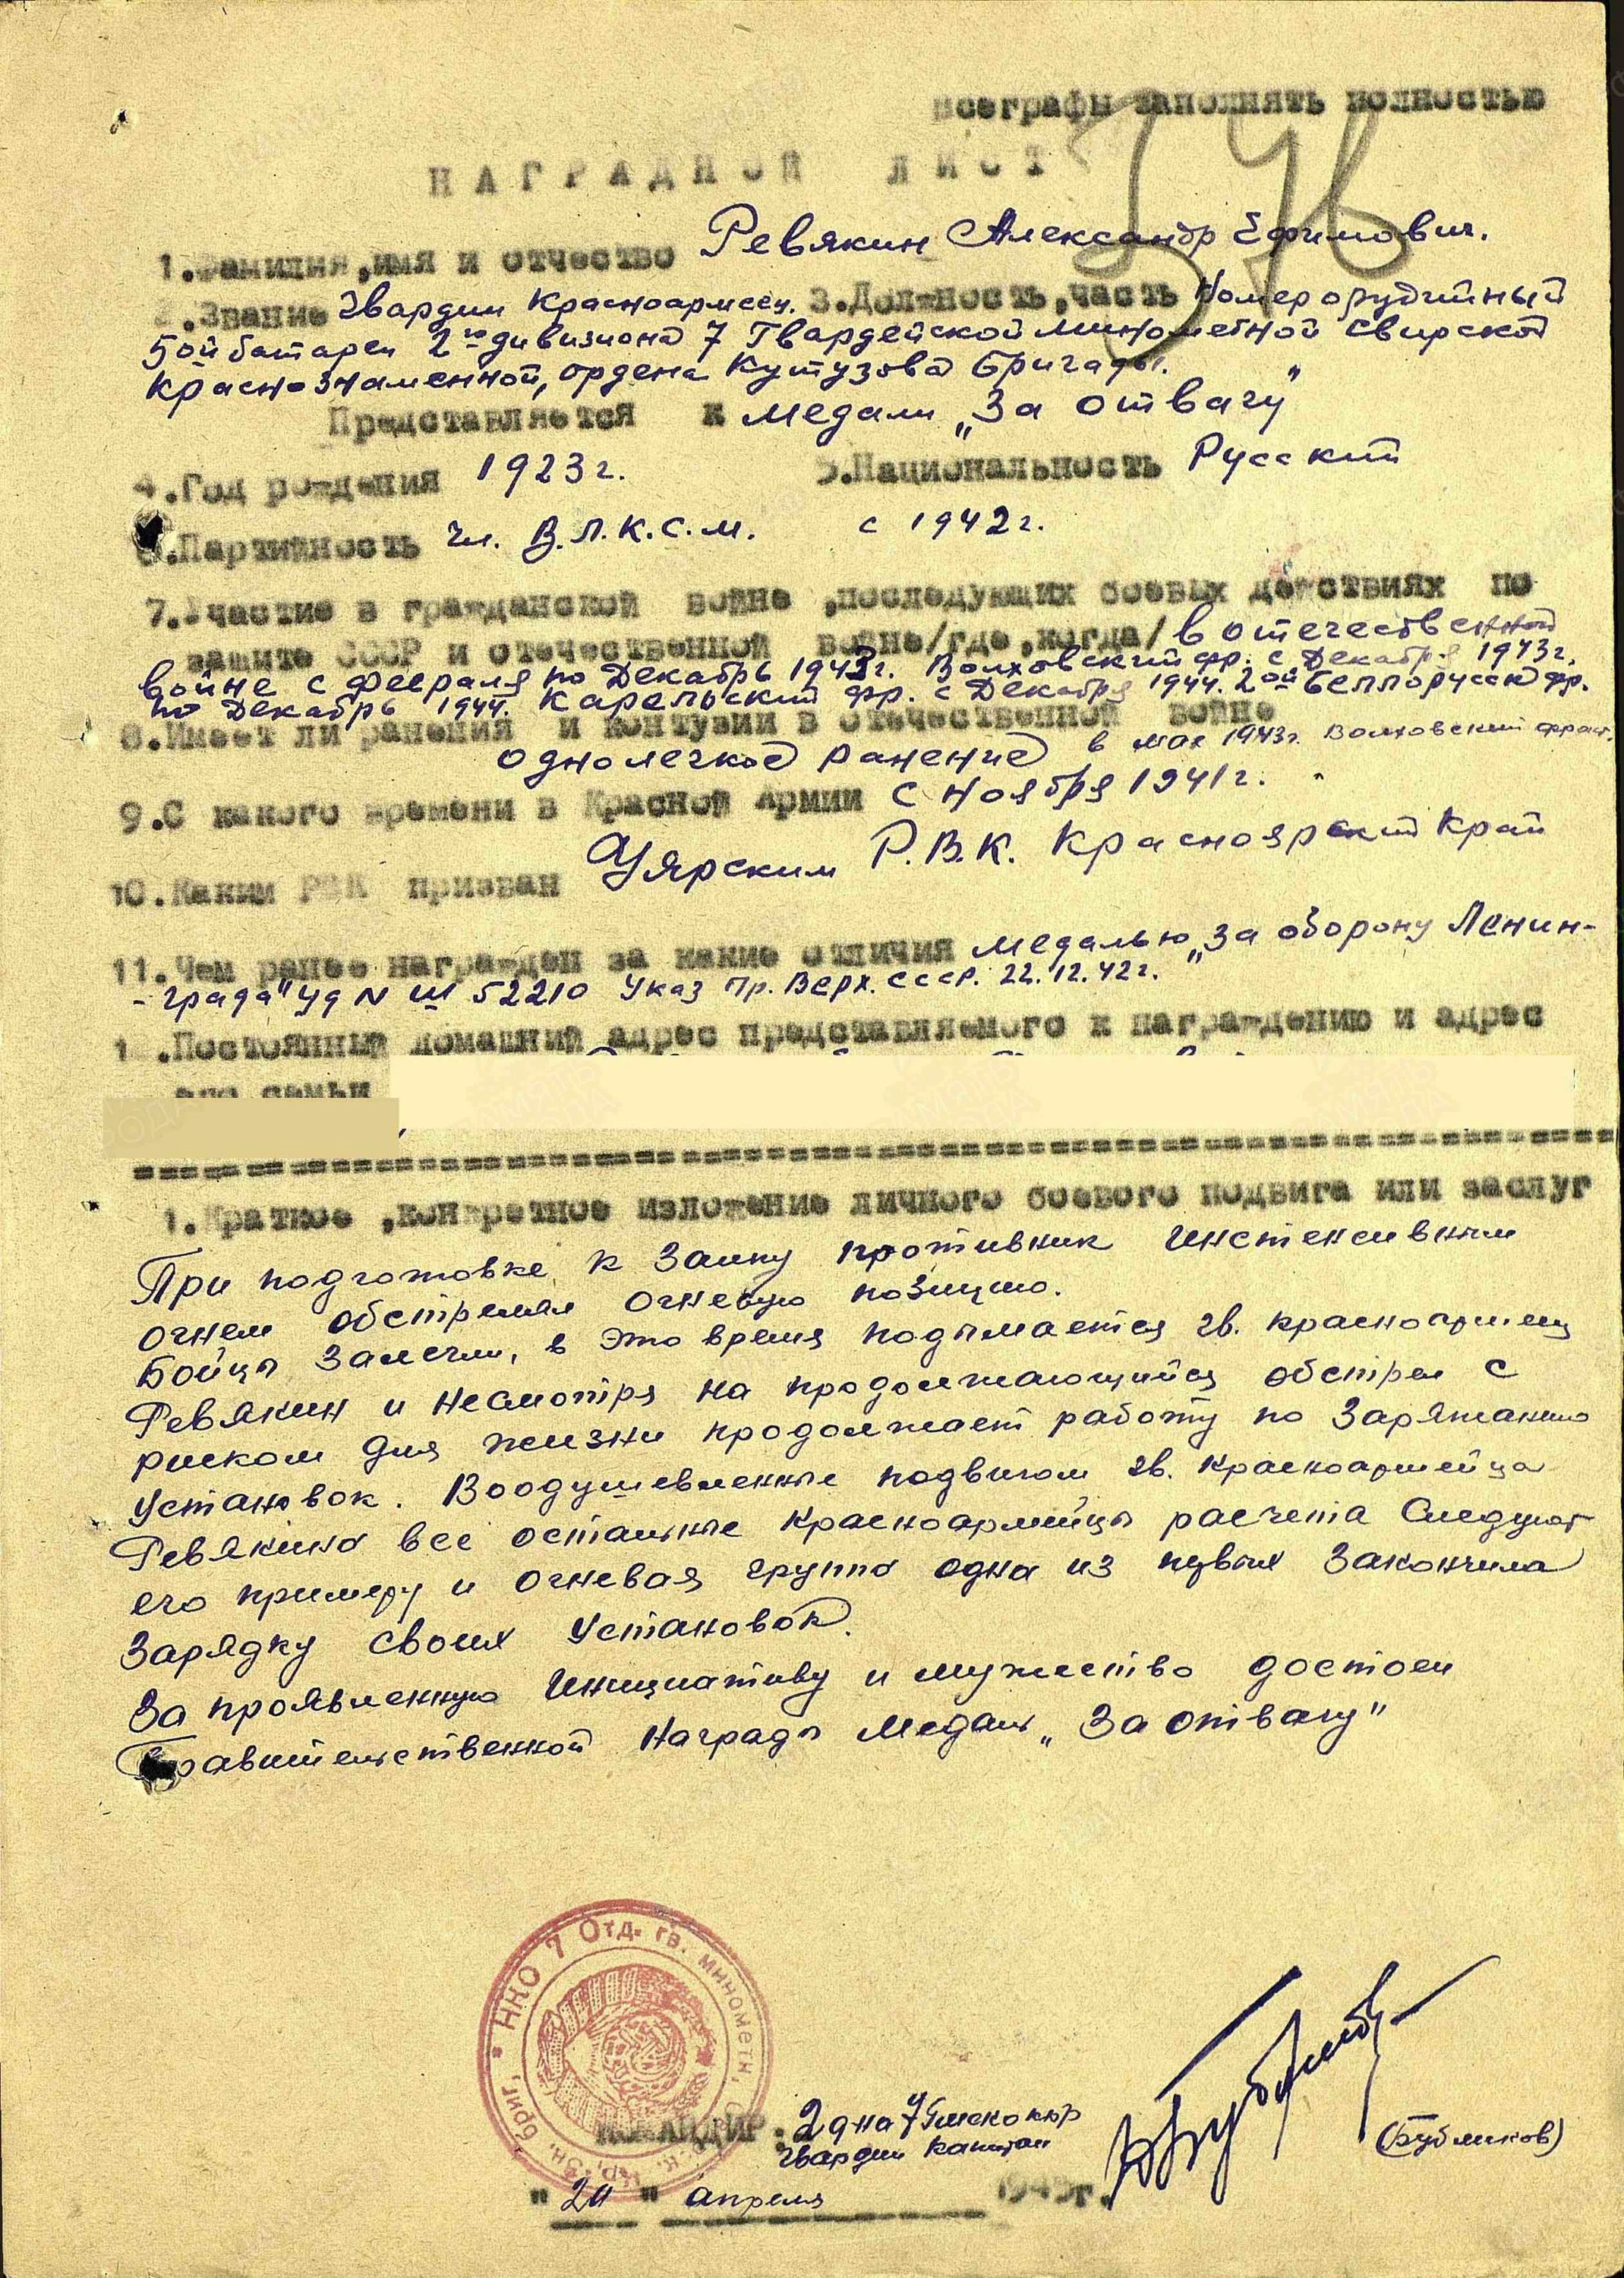 Все графы заполнять полностью
НАГРАДНОЙ ЛИСТ
1.Фамилия,имя и отчество Ревякин Александр Ефимович.
2.Звание Гвардии Красноармеец. 3.Должность,часть Номер орудийный
5ой батареи 2го дивизиона 7 Гвардейской минометной Свирской
Краснознаменной, ордена Кутузова бригады.
Представляется к медали „За отвагу"
4.Год рождения 1923г. 5.Национальность Русский
6.Партийность чл. В.Л.К.С.М. с 1942г.
7.Участие в гражданской войне ,последующих боевых действиях по
защите СССР и отечественной войне/где,когда/ в отечественной
войне с февраля по Декабрь 1943г. Волховский фр. с Декабря 1943г.
по Декабрь 1944г. Карельский фр. с Декабря 1944. 2ой Беллорусск фр.
8.Имеет ли ранения и контузии в отечественной войне
одно легкое ранение в мае 1943г. Волховский фронт.
9.С какого времени в Красной Армии с Ноября 1941г.
10.Каким РВК призван Уярским Р.В.К. Красноярский Край
11.Чем ранее награжден за какие отличия медалью „За оборону Ленин-
-града" Уд N Ш 52210 Указ Пр. Верх. СССР. 22.12.42г.
12.Постоянный домашний адрес представляемого к награждению и адрес
его семьи
1.Краткое ,конкретное изложение личного боевого подвига или заслуг
При подготовке к залпу противник инстенсивным
огнем обстрелял огневую позицию.
Бойцы залегли, в это время подымается гв. красноармеец
Ревякин и несмотря на продолжающийся обстрел с
риском для жизни продолжает работу по заряжанию
установок. Воодушевленные подвигом гв. красноармейца
Ревякина все остальные красноармейцы расчета следуют
его примеру и огневая группа одна из првых закончила
зарядку своих установок.
За проявленную инициативу и мужество достоен
Правительственной награды медаль „За отвагу"
НКО 7 Отд. гв. минометн. бриг.
КОМАНДИР: 2 дна 7 Гмскокбр
гвардии капитан
(Бубликов)
"20" апреля 1945г.